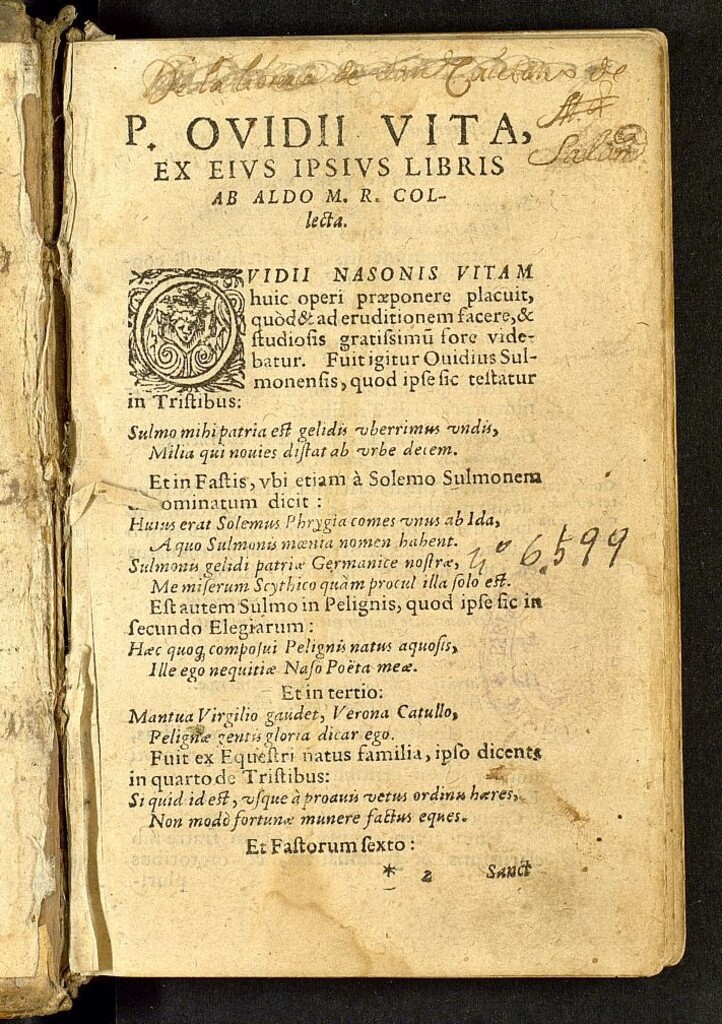 De la libreria de San Caietano de
Salam
P. OVIDII VITA,
EX EIVS IPSIVS LIBRIS
AB ALDO M. R. COL-
lecta.
OVIDII NASONIS VITAM
huic operi præponere placuit,
quòd & ad eruditionem facere, &
studiosis gratissimū fore vide-
batur. Fuit igitur Ouidius Sul-
monensis, quod ipse sic testatur
in Tristibus:
Sulmo mihi patria est gelidis vberrimus vndis,
Milia qui nouies distat ab vrbe decem.
Et in Fastis, vbi etiam à Solemo Sulmonem
ominatum dicit :
Huius erat Solemus Phrygia comes vnus ab Ida,
A quo Sulmonis mœnia nomen habent.
Sulmonis gelidi patriæ Germanice nostræ,
Me miserum Scythico quàm procul illa solo est.
Est autem Sulmo in Pelignis, quod ipse sic in
secundo Elegiarum :
Hæc quoq; composui Pelignis natus aquosis,
Ille ego nequitiæ Naso Poëta meæ.
Et in tertio:
Mantua Virgilio gaudet, Verona Catullo,
Pelignæ gentis gloria dicar ego.
Fuit ex Equestri natus familia, ipso dicente
in quarto de Tristibus:
Si quid id est, vsque à proauis vetus ordinis hæres,
Non modò fortunæ munere factus eques.
Et Fastorum sexto :
* 2 Sanct
6.599